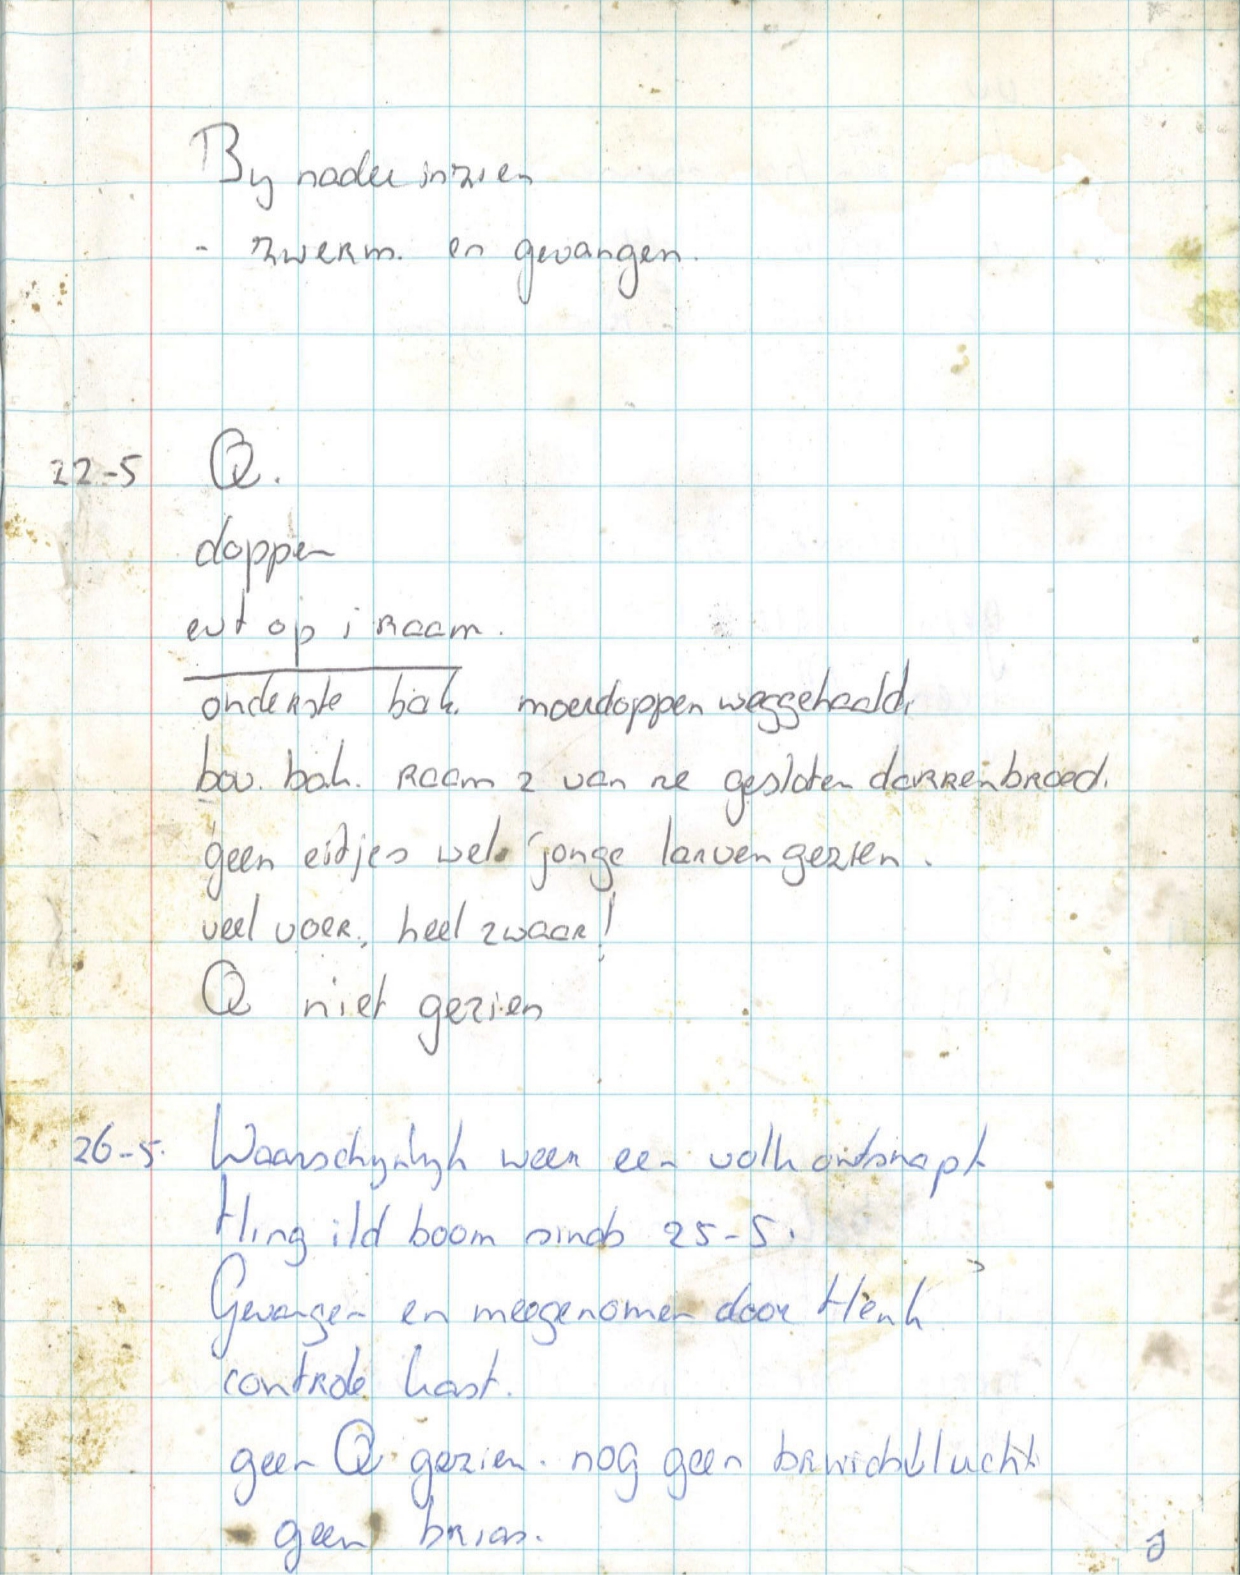 By nader inzien
- zwerm. en gevangen.
22-5 Q.
doppen
evt op 1 raam.
onderste bak. moerdoppen weggehaald.
bov. bak. raam 2 van re gesloten darrenbroed.
geen eitjes wel jonge larven gezien.
veel voer, heel zwaar!
Q niet gezien
26-5. Waarschynlyk weer een volk ontsnapt
Hing i/d boom sinds 25-5.
Gevangen en meegenomen door Henk
controle kast.
geen Q gezien. nog geen
geen brias.